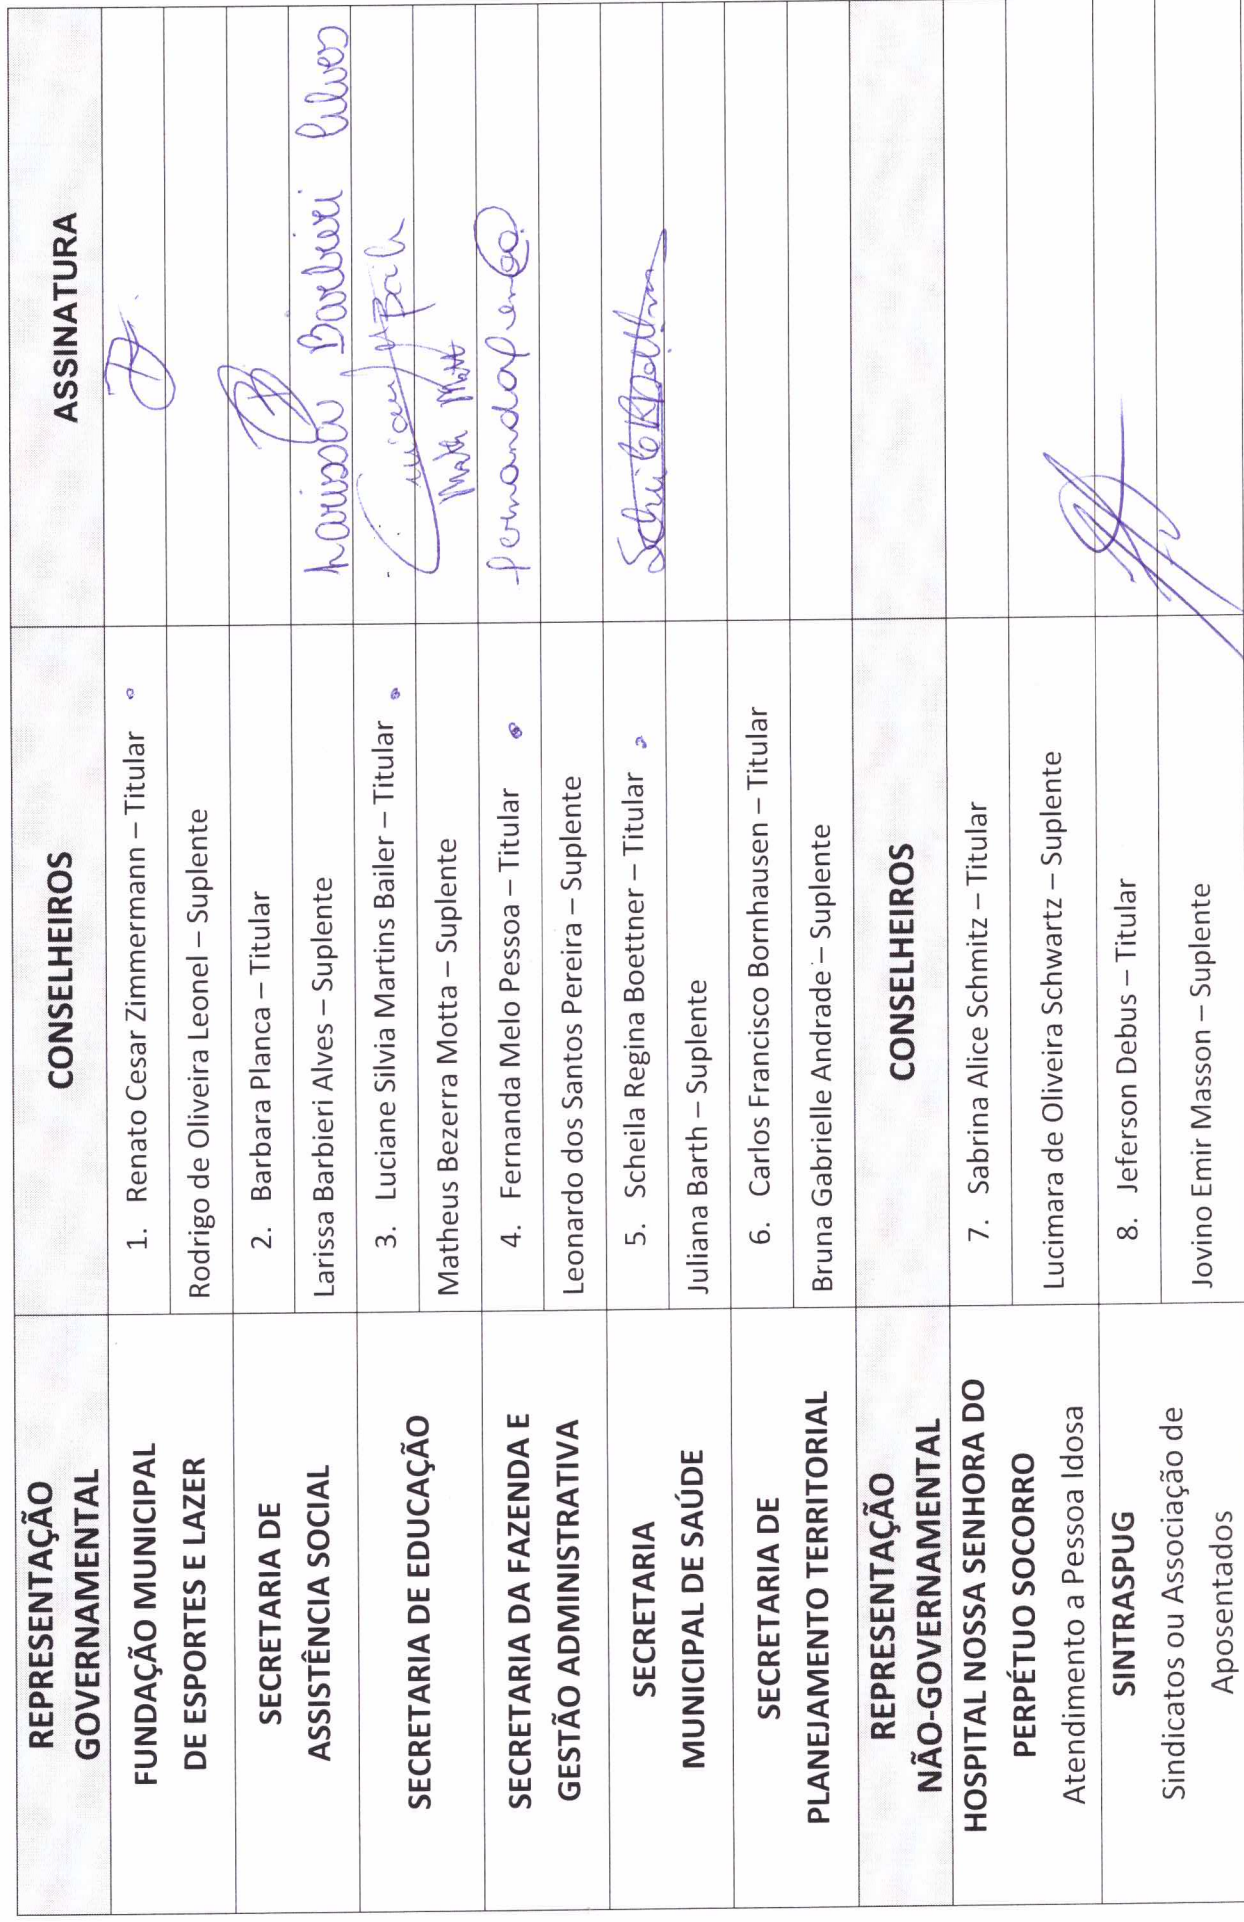 REPRESENTAÇÃO
GOVERNAMENTAL
CONSELHEIROS
ASSINATURA
FUNDAÇÃO MUNICIPAL
DE ESPORTES E LAZER
1. Renato Cesar Zimmermann – Titular
Rodrigo de Oliveira Leonel – Suplente
SECRETARIA DE
ASSISTÊNCIA SOCIAL
2. Barbara Planca – Titular
Larissa Barbieri Alves – Suplente
Larissa Barbieri Alves
SECRETARIA DE EDUCAÇÃO
3. Luciane Silvia Martins Bailer – Titular
Matheus Bezerra Motta – Suplente
SECRETARIA DA FAZENDA E
GESTÃO ADMINISTRATIVA
4. Fernanda Melo Pessoa – Titular
Leonardo dos Santos Pereira – Suplente
SECRETARIA
MUNICIPAL DE SAÚDE
5. Scheila Regina Boettner – Titular
Juliana Barth – Suplente
SECRETARIA DE
PLANEJAMENTO TERRITORIAL
6. Carlos Francisco Bornhausen – Titular
Bruna Gabrielle Andrade – Suplente
REPRESENTAÇÃO
NÃO-GOVERNAMENTAL
CONSELHEIROS
HOSPITAL NOSSA SENHORA DO
PERPÉTUO SOCORRO
Atendimento a Pessoa Idosa
7. Sabrina Alice Schmitz – Titular
Lucimara de Oliveira Schwartz – Suplente
SINTRASPUG
Sindicatos ou Associação de
Aposentados
8. Jeferson Debus – Titular
Jovino Emir Masson – Suplente